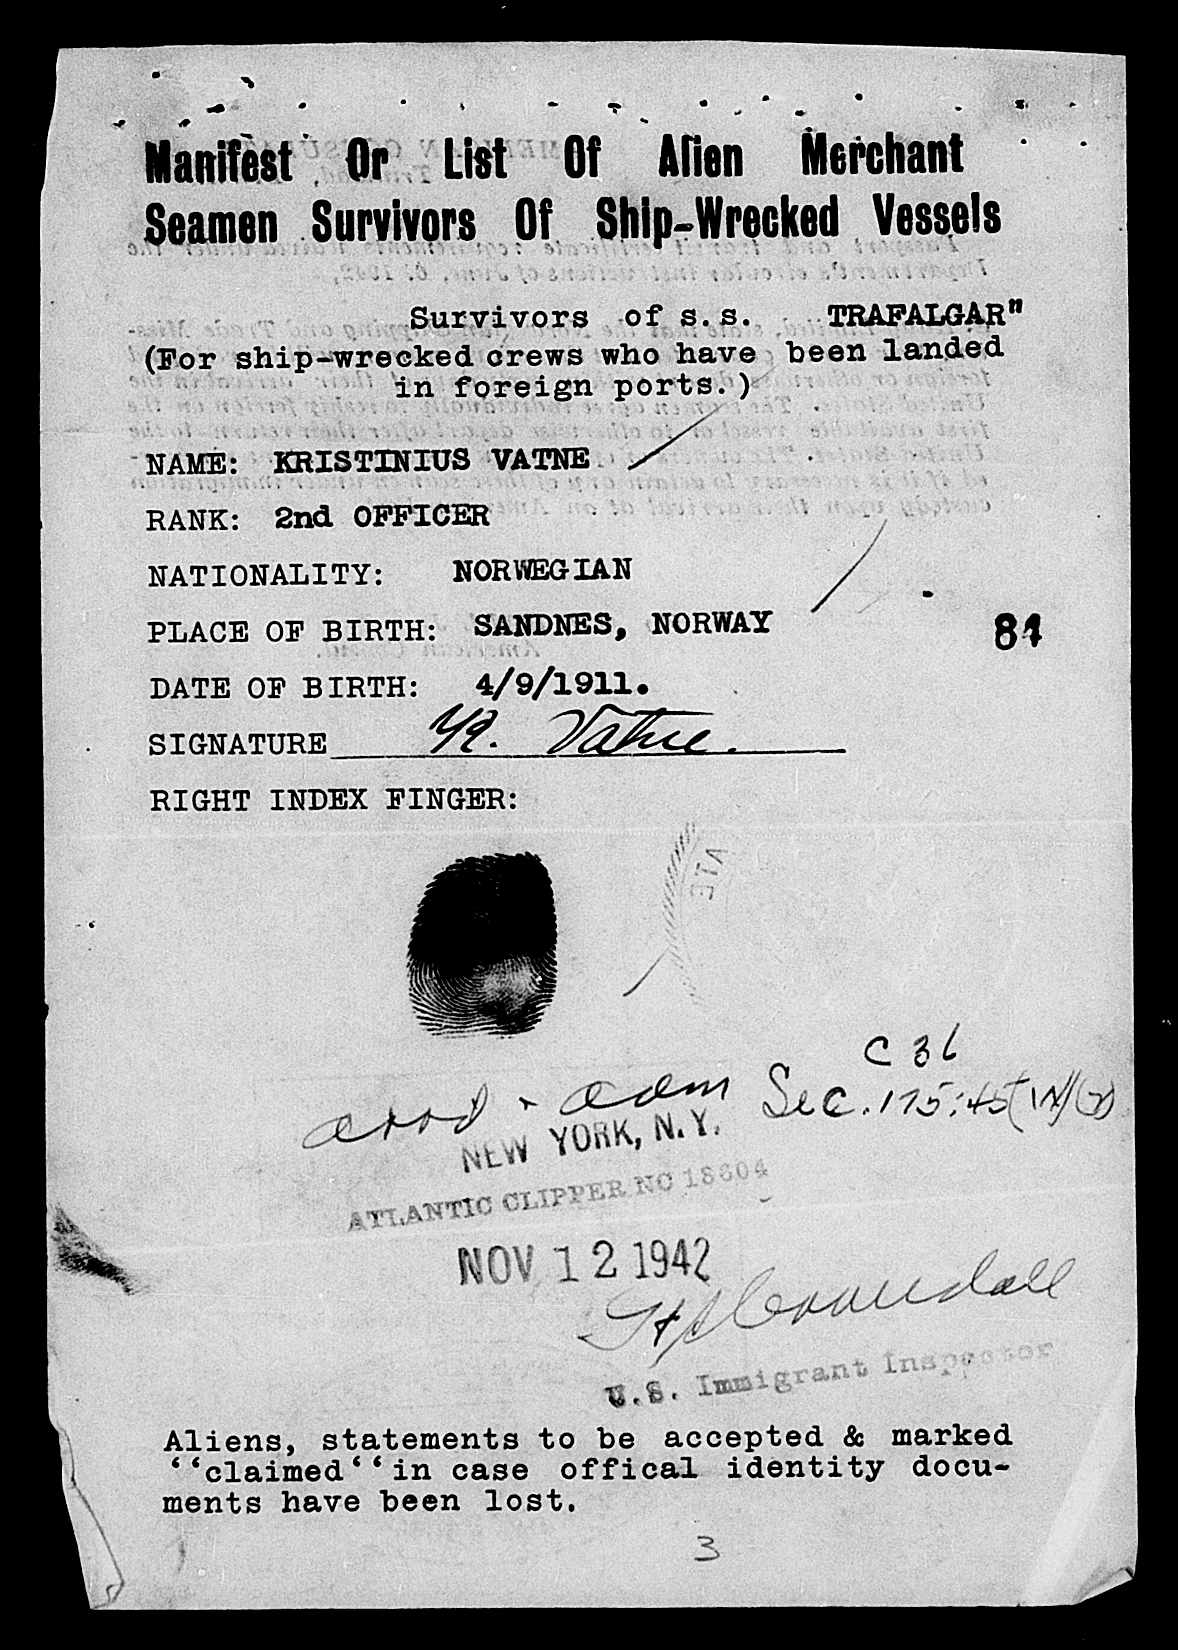 Manifest Or List Of Alien Merchant
Seamen Survivors Of Ship-Wrecked Vessels
Survivors of s.s. TRAFALGAR"
(For ship-wrecked crews who have been landed
in foreign ports.)
NAME: KRISTINIUS VATNE
RANK: 2nd OFFICER
NATIONALITY: NORWEGIAN
PLACE OF BIRTH: SANDNES, NORWAY
84
DATE OF BIRTH: 4/9/1911.
SIGNATURE K. Vatne.
RIGHT INDEX FINGER:
C 36
adm Sec. 175.45
NEW YORK, N.Y.
ATLANTIC CLIPPER NO 18604
NOV 12 1942
U.S. Immigrant Inspector
Aliens, statements to be accepted & marked
‘‘claimed‘‘in case offical identity docu-
ments have been lost.
3